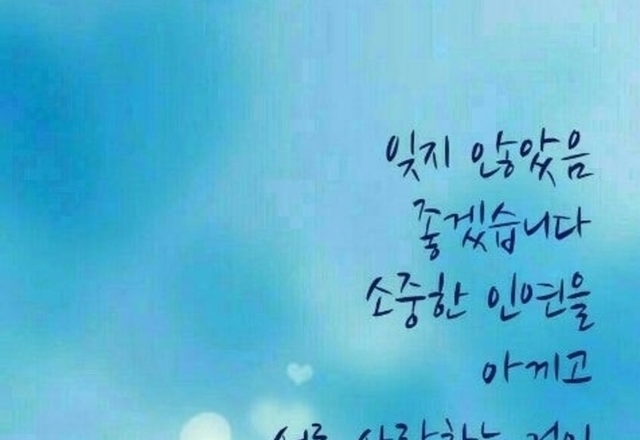 잊지 않았음
좋겠습니다
소중한 인연을
아끼고